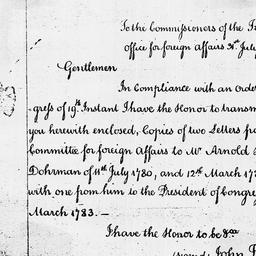 To the Commissioners of the
office for foreign Affairs 31st July
Gentlemen
In Compliance with an Order
-gress of 19th Instant I have the Honor to transm
you herewith enclosed, Copies of two Letters
Committee for foreign Affairs to Mr Arnold
Dohrman of 11th July 1780, and 12th March 178
with one from him to the President of Congre
March 1783. —
I have the Honor to be &ca
John